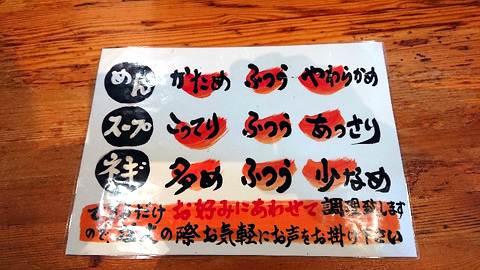 めん かため ふつう やわらかめ
スープ こってり ふつう あっさり
ネギ 多め ふつう 少なめ
だけ お好みにあわせて 調理致します
ので の際お気軽にお声をお掛け下さい